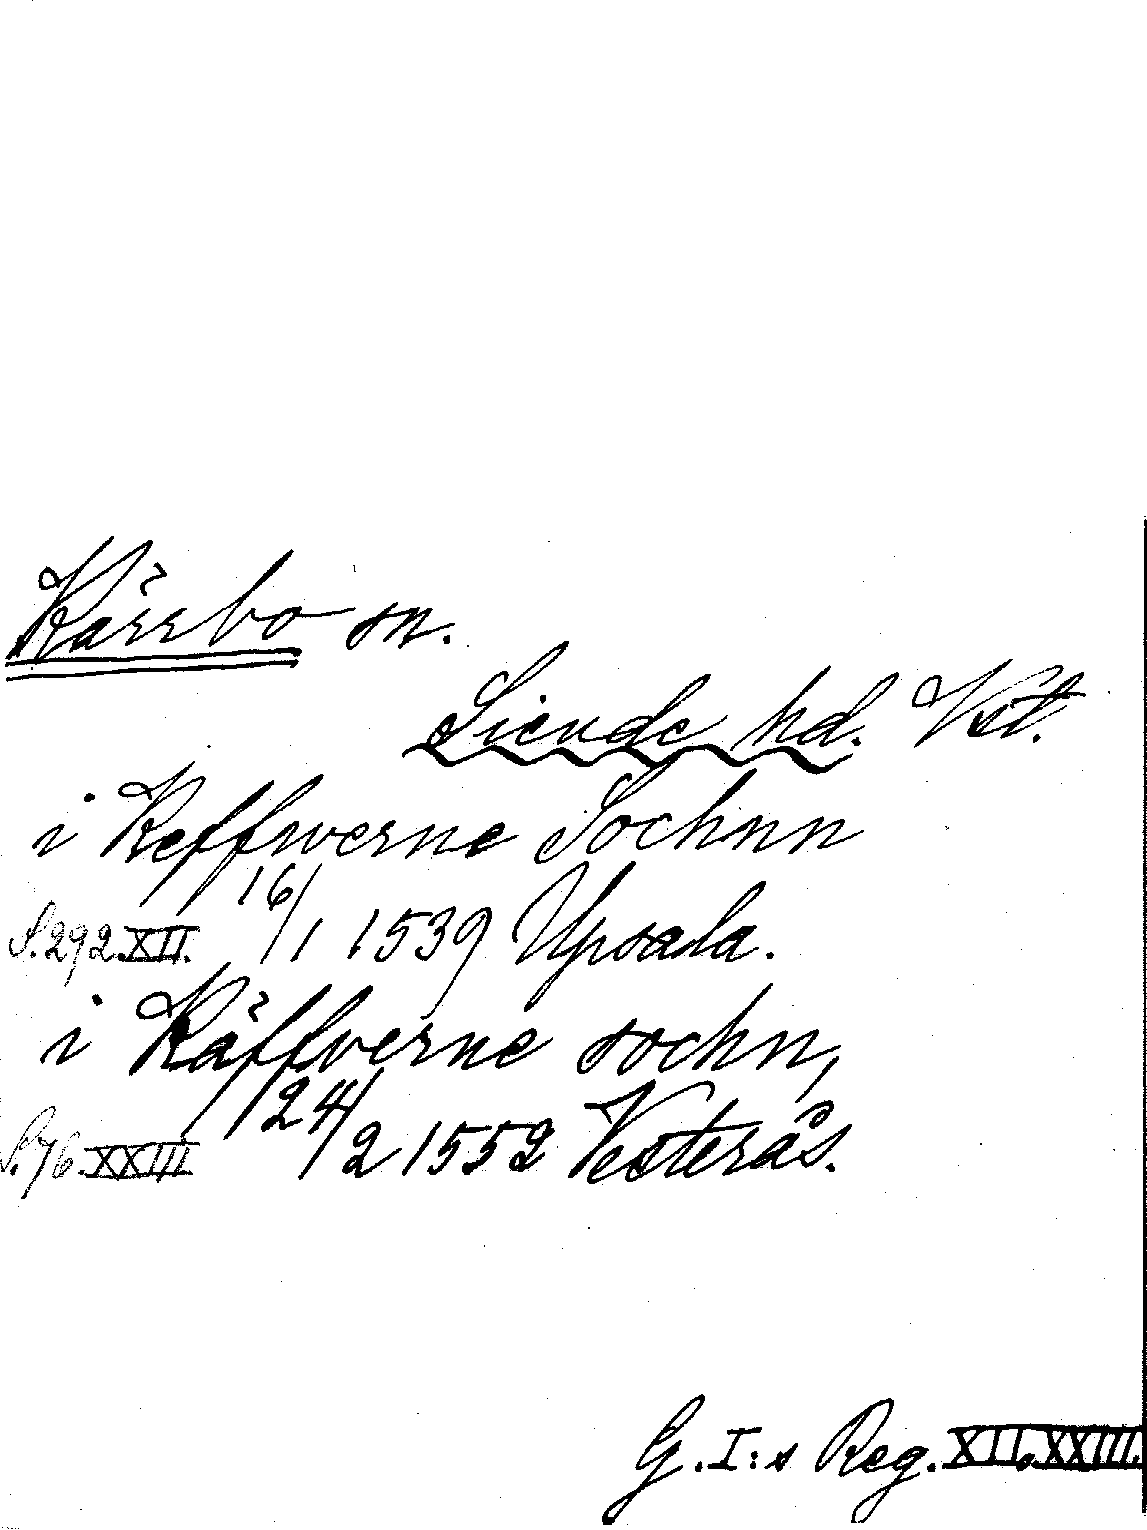 Kärrbo sn.
Siende hd. Vst.
i Keffwerne Sochnn
S. 292. XII. 16/1 1539 Upsala.
i Käffverne sochn,
S. 76. XXIII 24/2 1552 Vesterås.
G. I:s Reg. XII. XXIII.